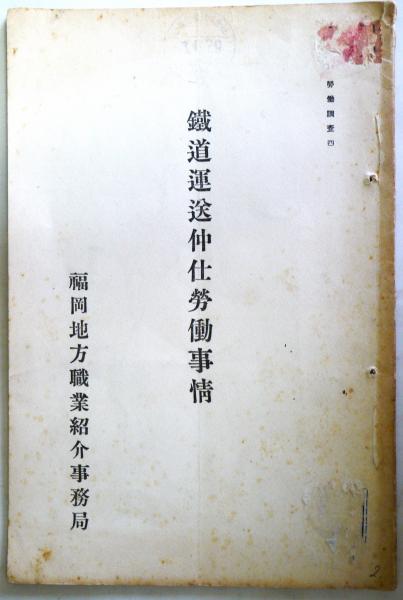 勞働調査四
鐵道運送仲仕勞働事情
福岡地方職業紹介事務局
2